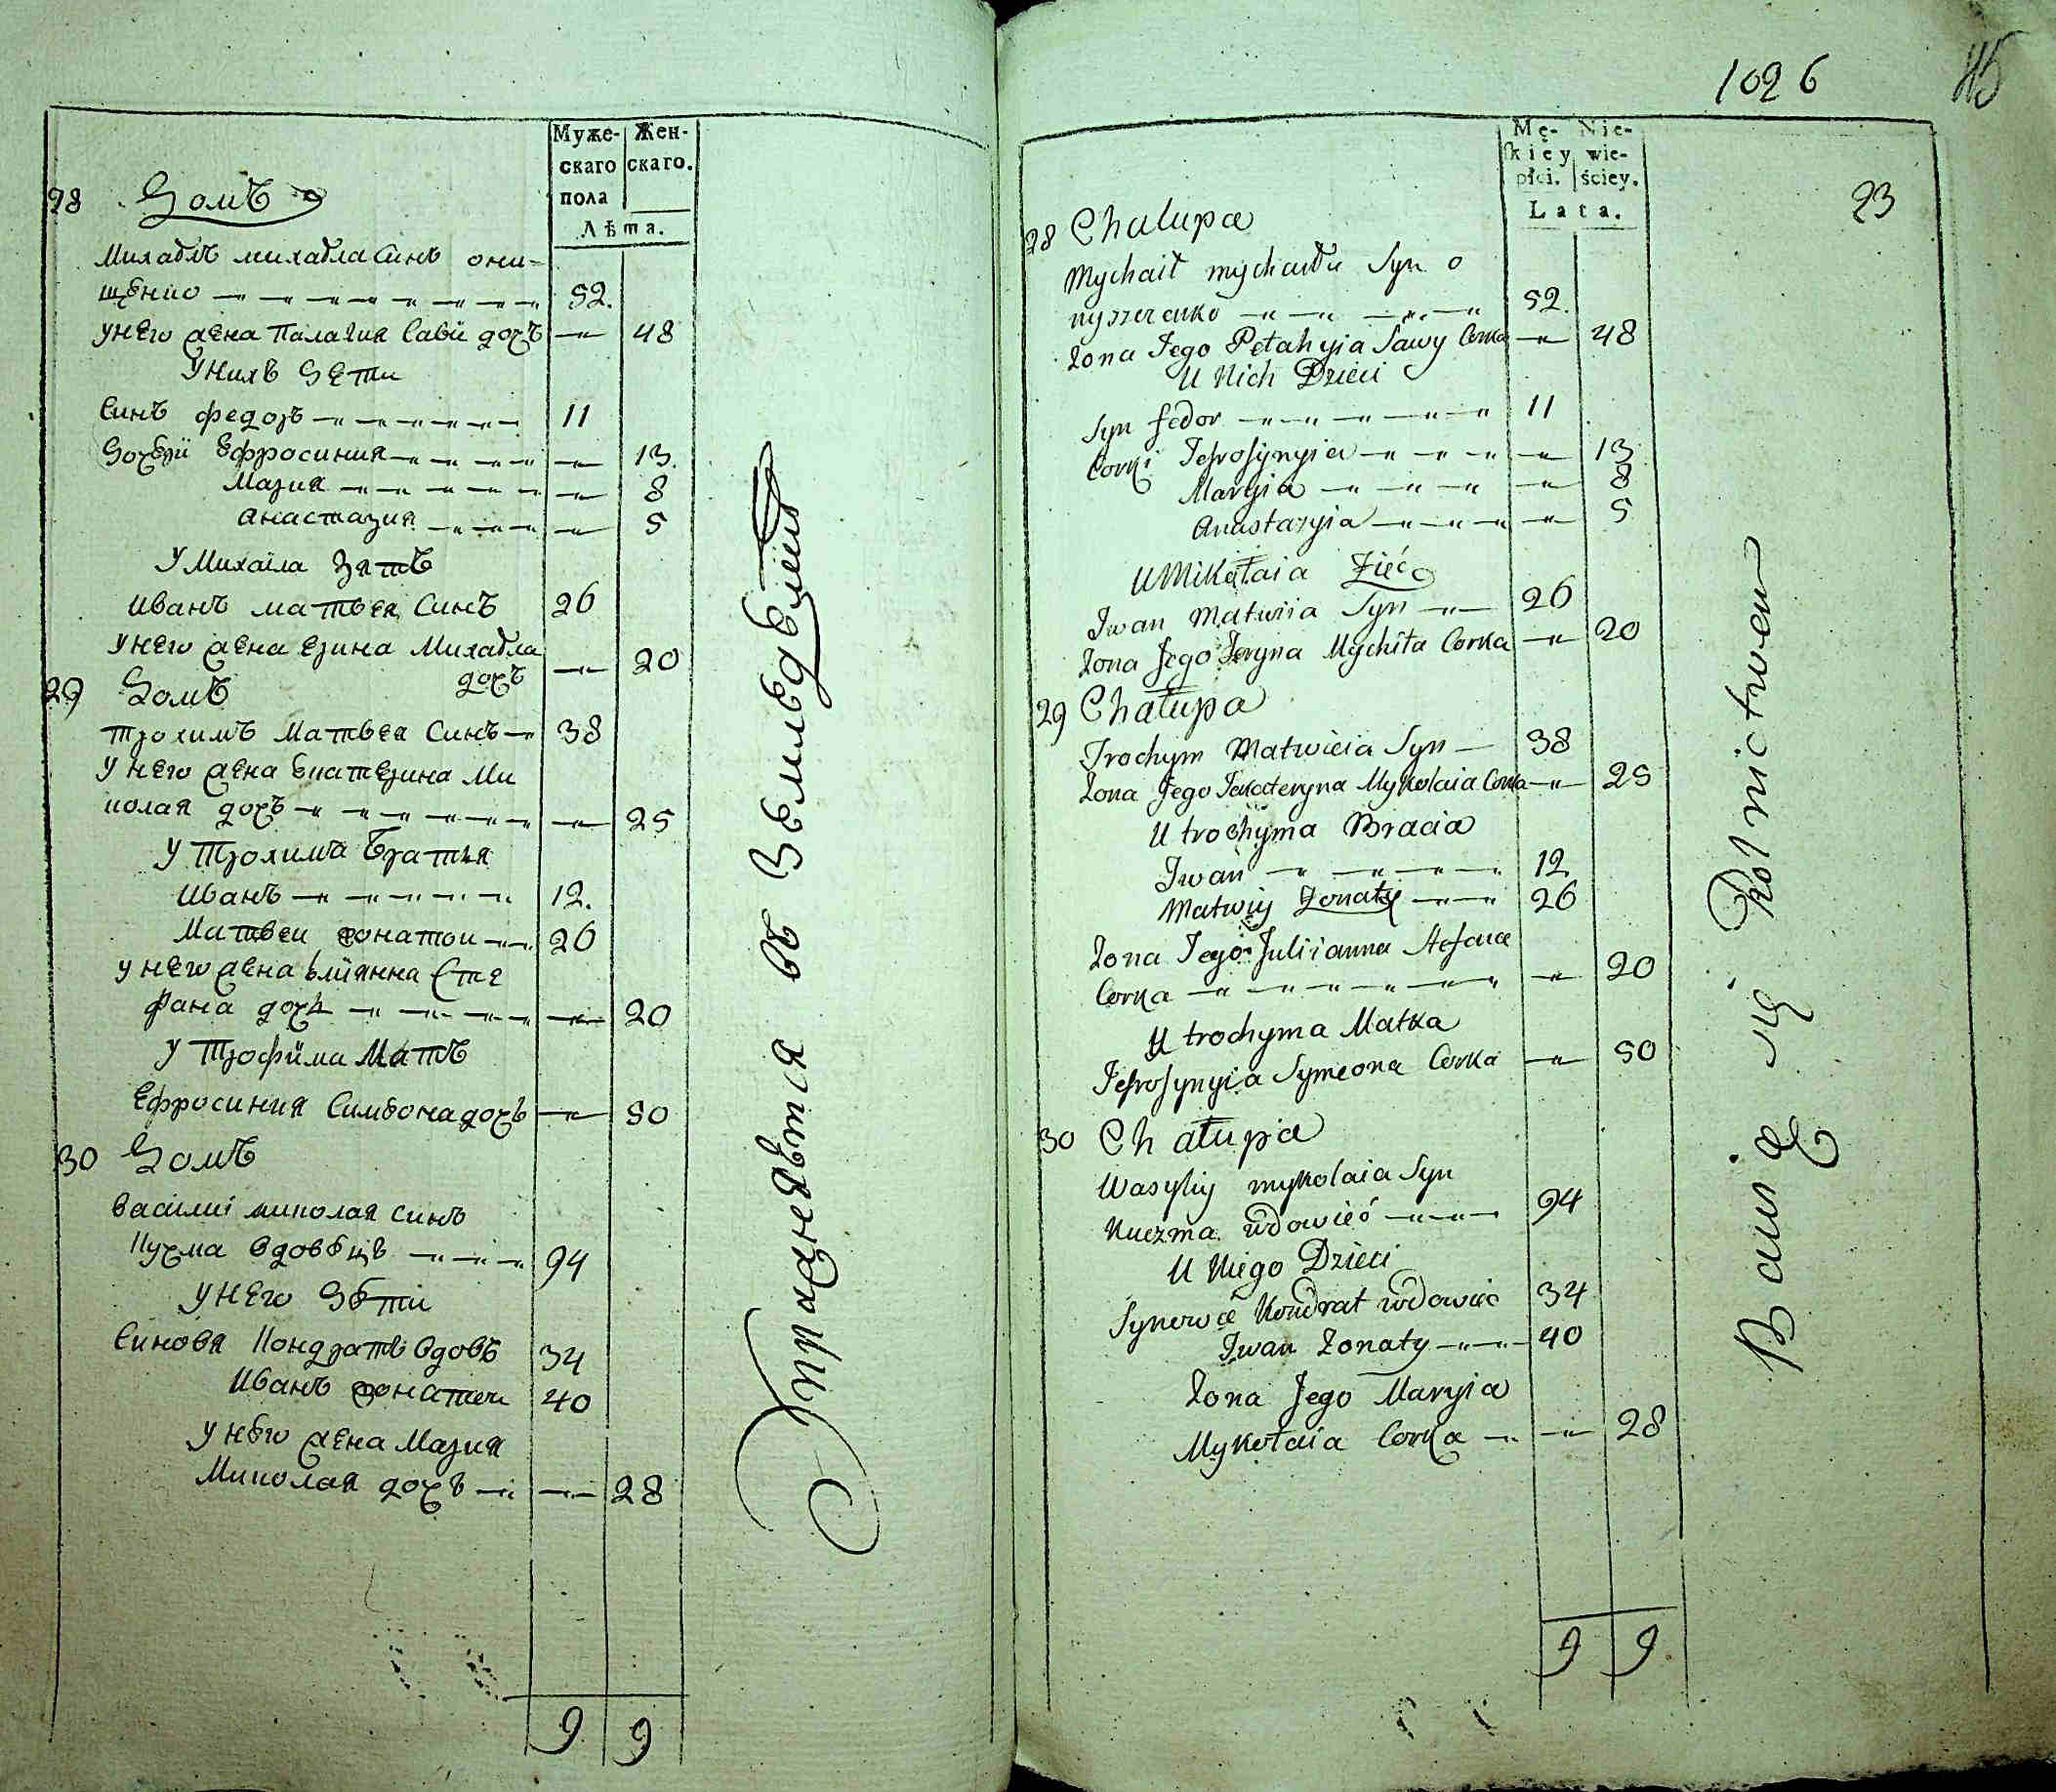 Муже-
скаго
пола
Жен-
скаго.
Лѣта.
28 Домъ
Михаѣлъ михаѣла Синъ они-
щенко 52.
унего жена Палагия Савы дочъ 48
Унихъ дети
Синъ федоръ 11
Дочери Ефросиния 13.
Мария 8
Анастазия 5
У Михаила Зять
иванъ матвея Синъ 26
унего жена Ерина Михаѣла
дочъ 20
29 Домъ
трохимъ Матвея Синъ 38
унего жена Екатерина Ми
колая дочъ 25
У Трохима Братья
Иванъ 12.
Матвеи жонатои 26
унего жена Улияна Сте
фана дочъ 20
У Трофима Мать
Ефросиния Симеона дочъ 50
30 Домъ
Василиі миколая синъ
Кучма вдовѣцъ 94
унего Дѣти
Синовя Кондратъ вдовъ 34
Иванъ жонатеи 40
унѣго жена Мария
Миколая дочъ 28
9 9
Упражняется въ Земледелии
1026
115
23
Mę-
ſkiey
płci.
Nie-
wie-
ściey.
Lata.
28 Chalupa
Mychaił mychaiła Syn o
nyszczenko 52.
Zona Jego Pełahyia Sawy Corka 48
U Nich Dzieci
Syn fedor 11
Corki Jefrosynyia 13
Maryia 8
Anastazyia 5
U Mikołaia Zięć
Jwan Matwiia Syn 26
Zona Jego Jeryna Mychiła Corka 20
29 Chałupa
Trochym Matwieia Syn 38
Zona Jego Jekateryna Mykolaia Corka 25
U trochyma Bracia
Jwan 12.
Matwiy Zonaty 26
Zona Jego Juliianna Stefana
Corka 20
U trochyma Matka
Jefrosynyia Symeona Corka 50
30 Chałupa
Wasyliy mykolaia Syn
Kuczma wdowieć 94
U Niego Dzieci
Synowie Kondrat wdowiec 34
Jwan Zonaty 40
Zona Jego Maryia
Mykołaia Corka 28
9 9
Bawią się Rolnictwem